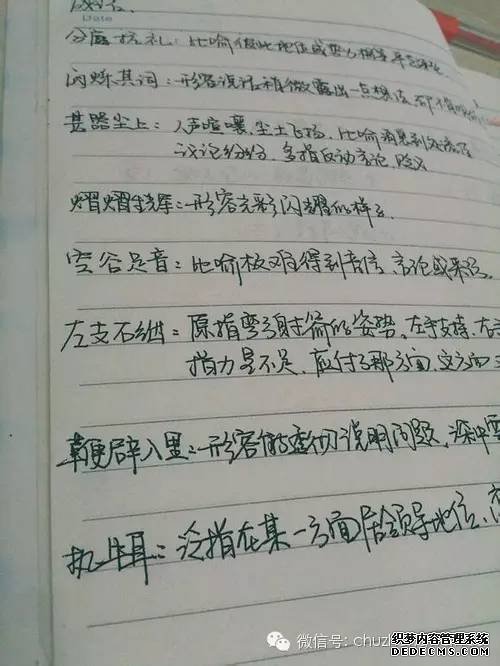 成语.
Date
分庭抗礼：比喻彼此地位或势力相等平起平坐
闪烁其词：形容说话稍微露出一点想法，却不肯
甚嚣尘上：人声喧嚷，尘土飞扬，比喻消息到处流传
议论纷纷，多指反动言论，贬义
熠熠生辉：形容光彩闪耀的样子.
空谷足音：比喻极难得到音信、言论或来访.
左支右绌：原指弯弓射箭的姿势，左手支持，右手
指力量不足，应付了那方面，这方面
鞭辟入里：形容能透彻说明问题，深中要
执牛耳：泛指在某一方面居领导地位，
微信号: chuzh
织梦内容管理系统
DEDECMS.COM